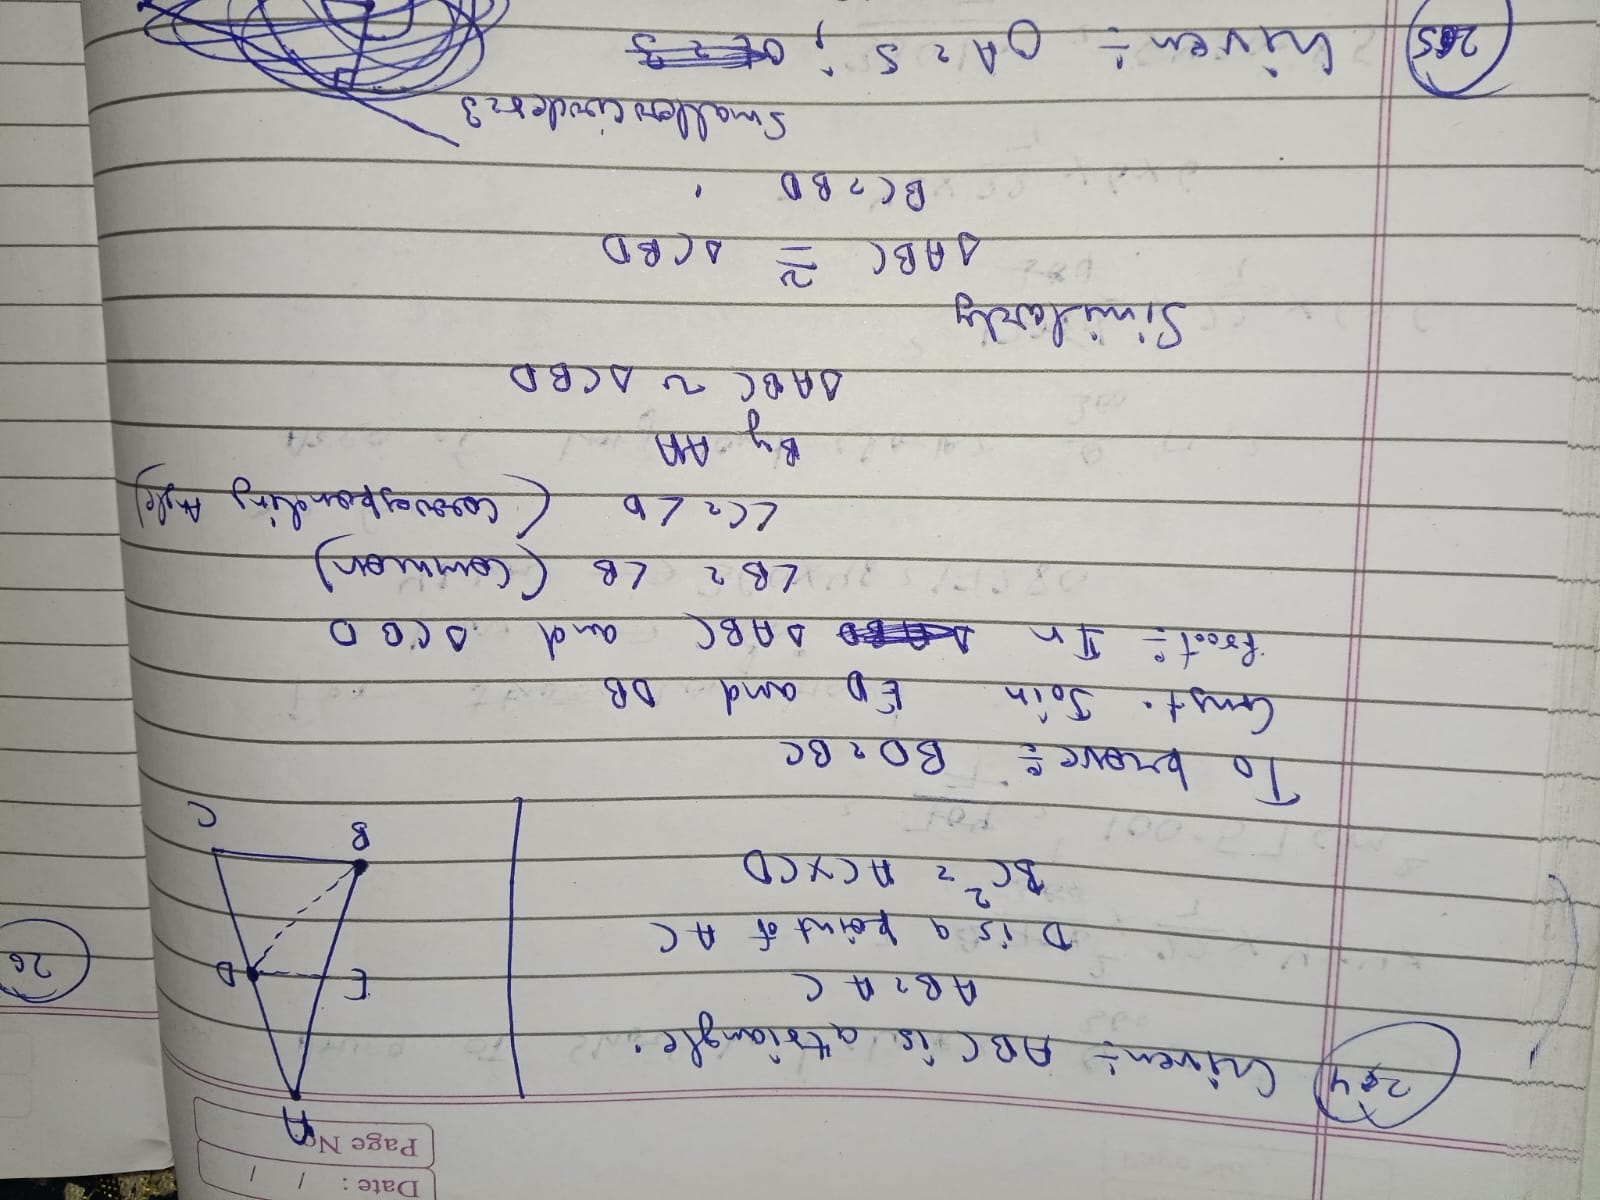 Date : / /
Page No.
204
Given :- ABC is a triangle.
AB = AC
D is a point of AC
BC² = AC × CD
A
E
D
B
C
To prove :- BD = BC
Const. Join ED and DB
Proof :- In ΔABC and ΔCBD
∠B = ∠B (Common)
∠C = ∠D (Corresponding Angle)
By AA
ΔABC ~ ΔCBD
Similarly
ΔABC ≅ ΔCBD
BC = BD
205
Given :- OA = 5 ;
Smaller circle = 3
20